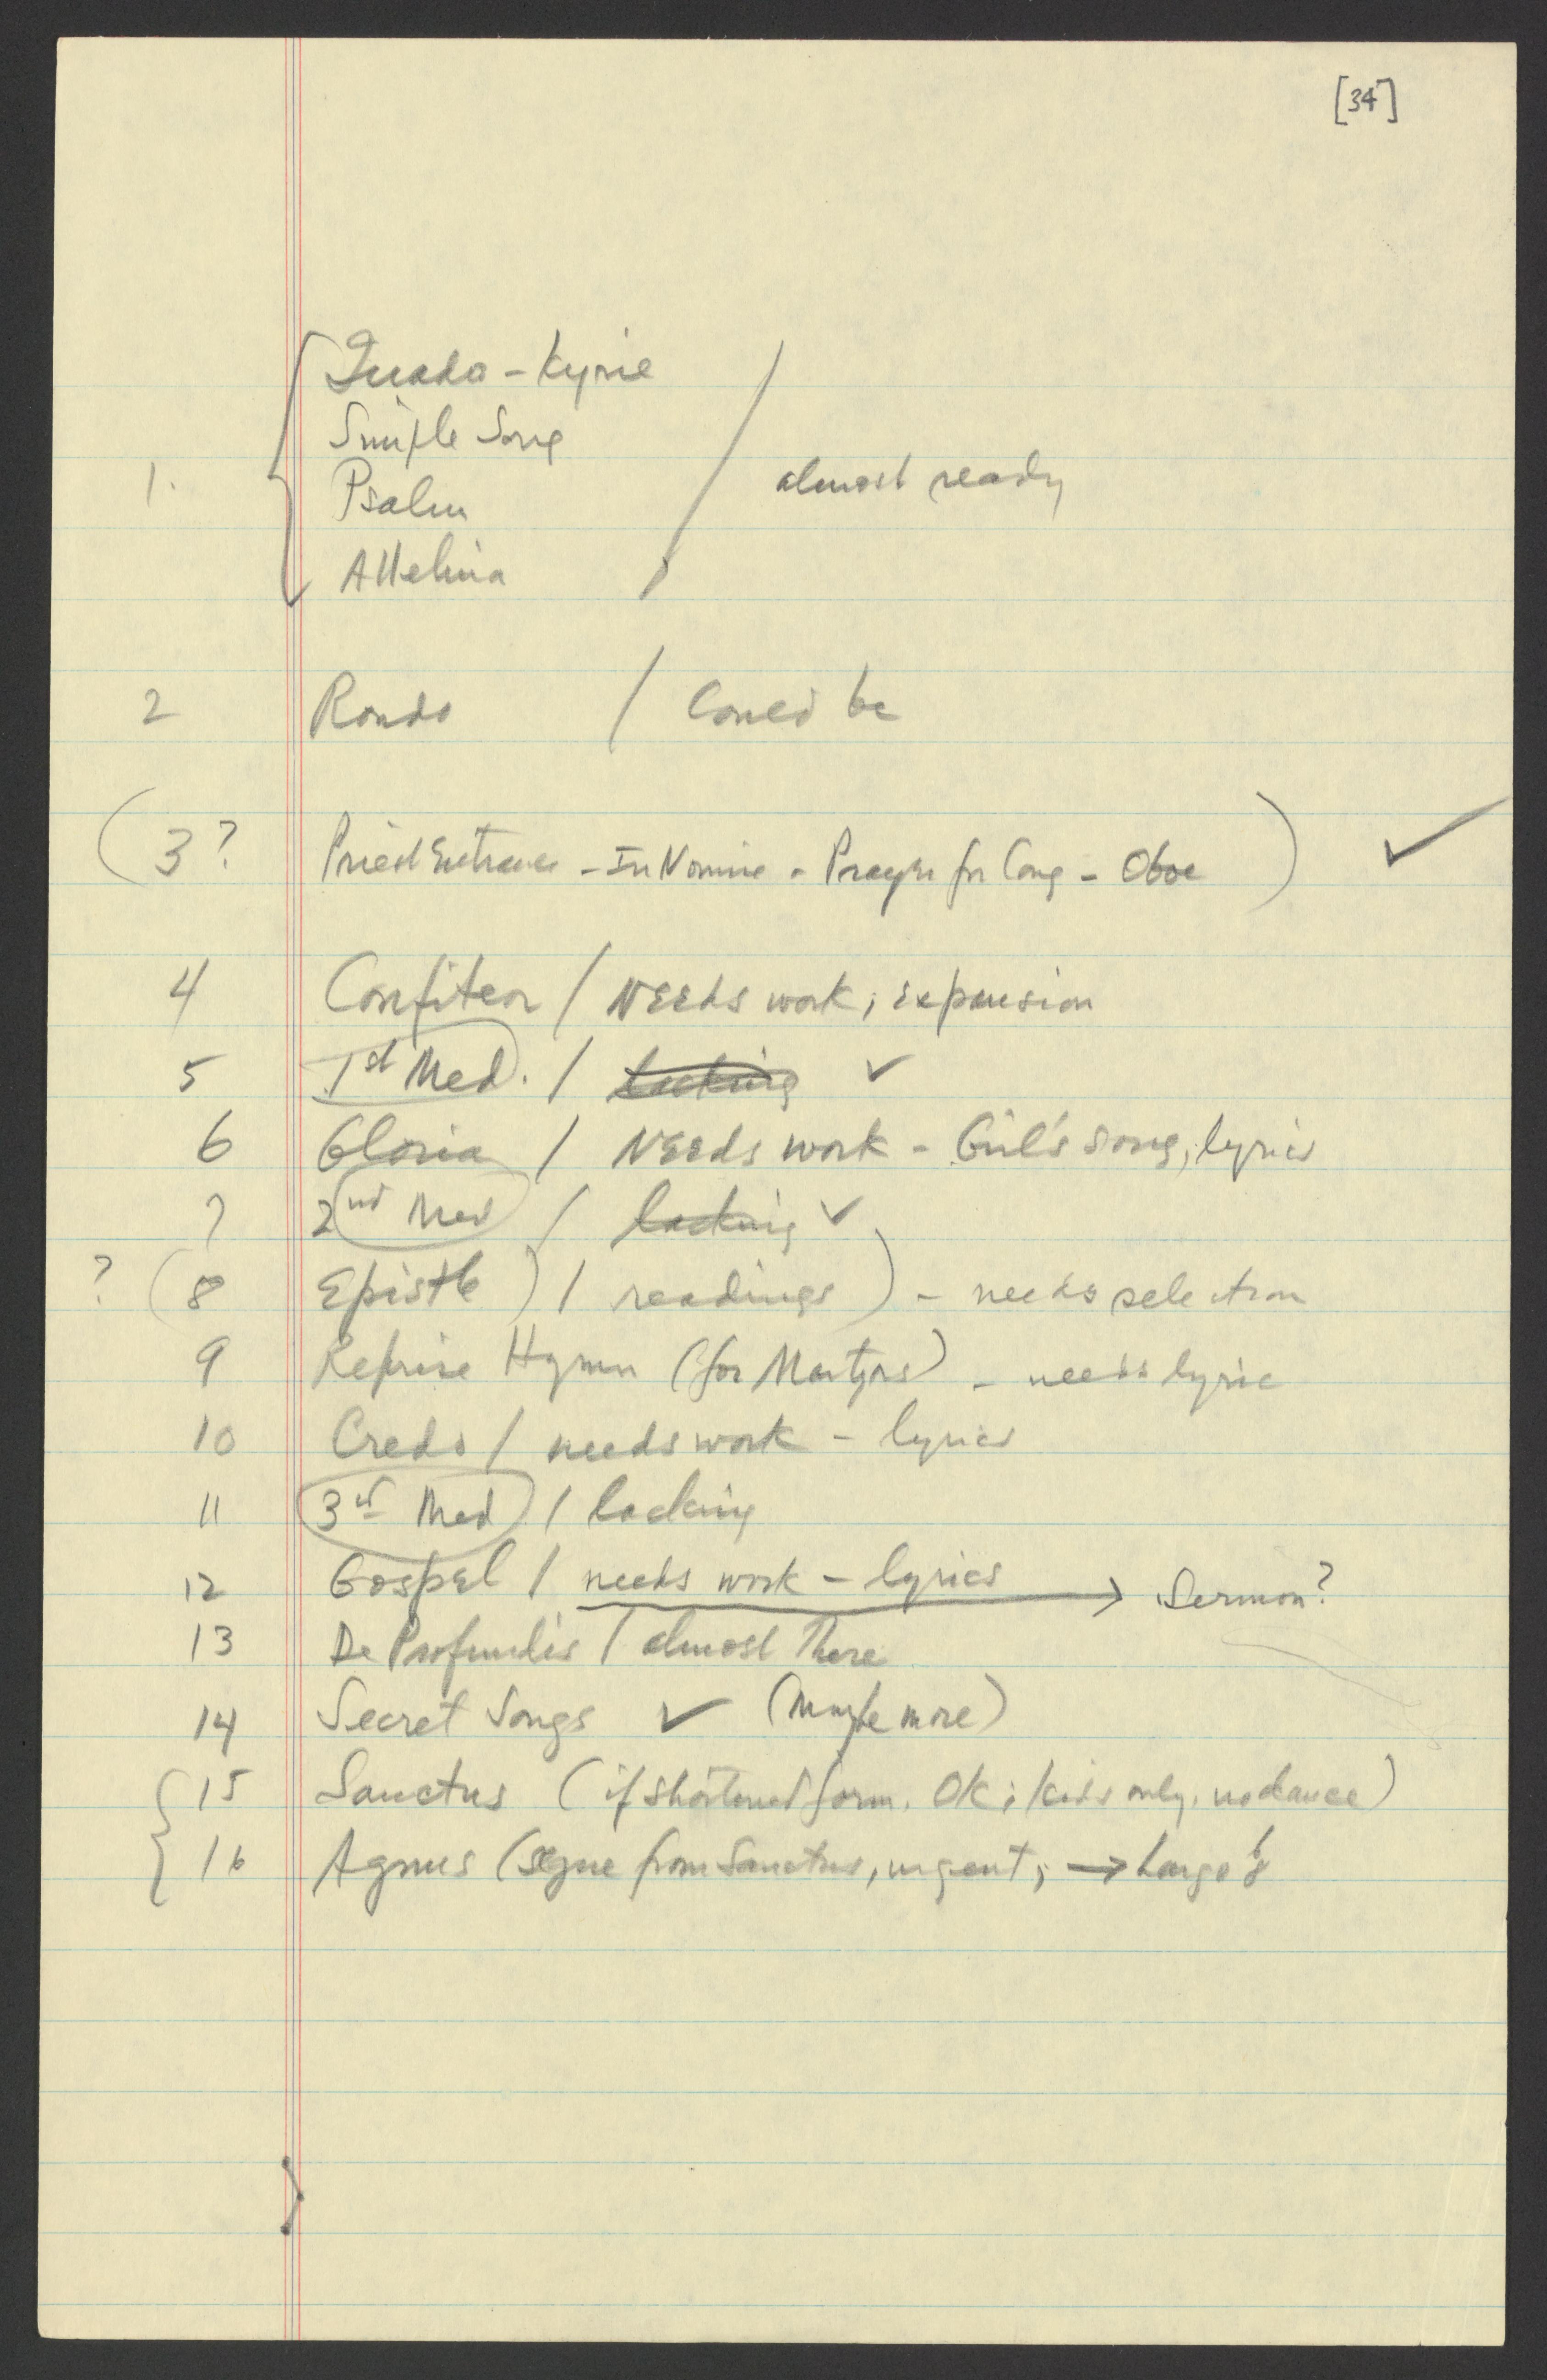 [34]
Quado - Kyrie
Simple Song
1. Psalm / almost ready
Alleluia
2 Rondo / Could be
(3? Priest Entrance - In Nomine - Prayer for Cong - Oboe) ✓
4 Confiteor / Needs work; expansion
5 1st Med. / lacking ✓
6 Gloria / Needs work - Girl's song; lyrics
7 2nd Med / lacking ✓
? (8 Epistle) / readings) - needs selection
9 Reprise Hymn (for Martyrs) - needs lyric
10 Credo / needs work - lyrics
11 3rd Med / lacking
12 Gospel / needs work - lyrics → Sermon?
13 De Profundis / almost there
14 Secret Songs ✓ (maybe more)
15 Sanctus (if shortened form. OK; kids only, no dance)
16 Agnus (segue from Sanctus, urgent; → Largo